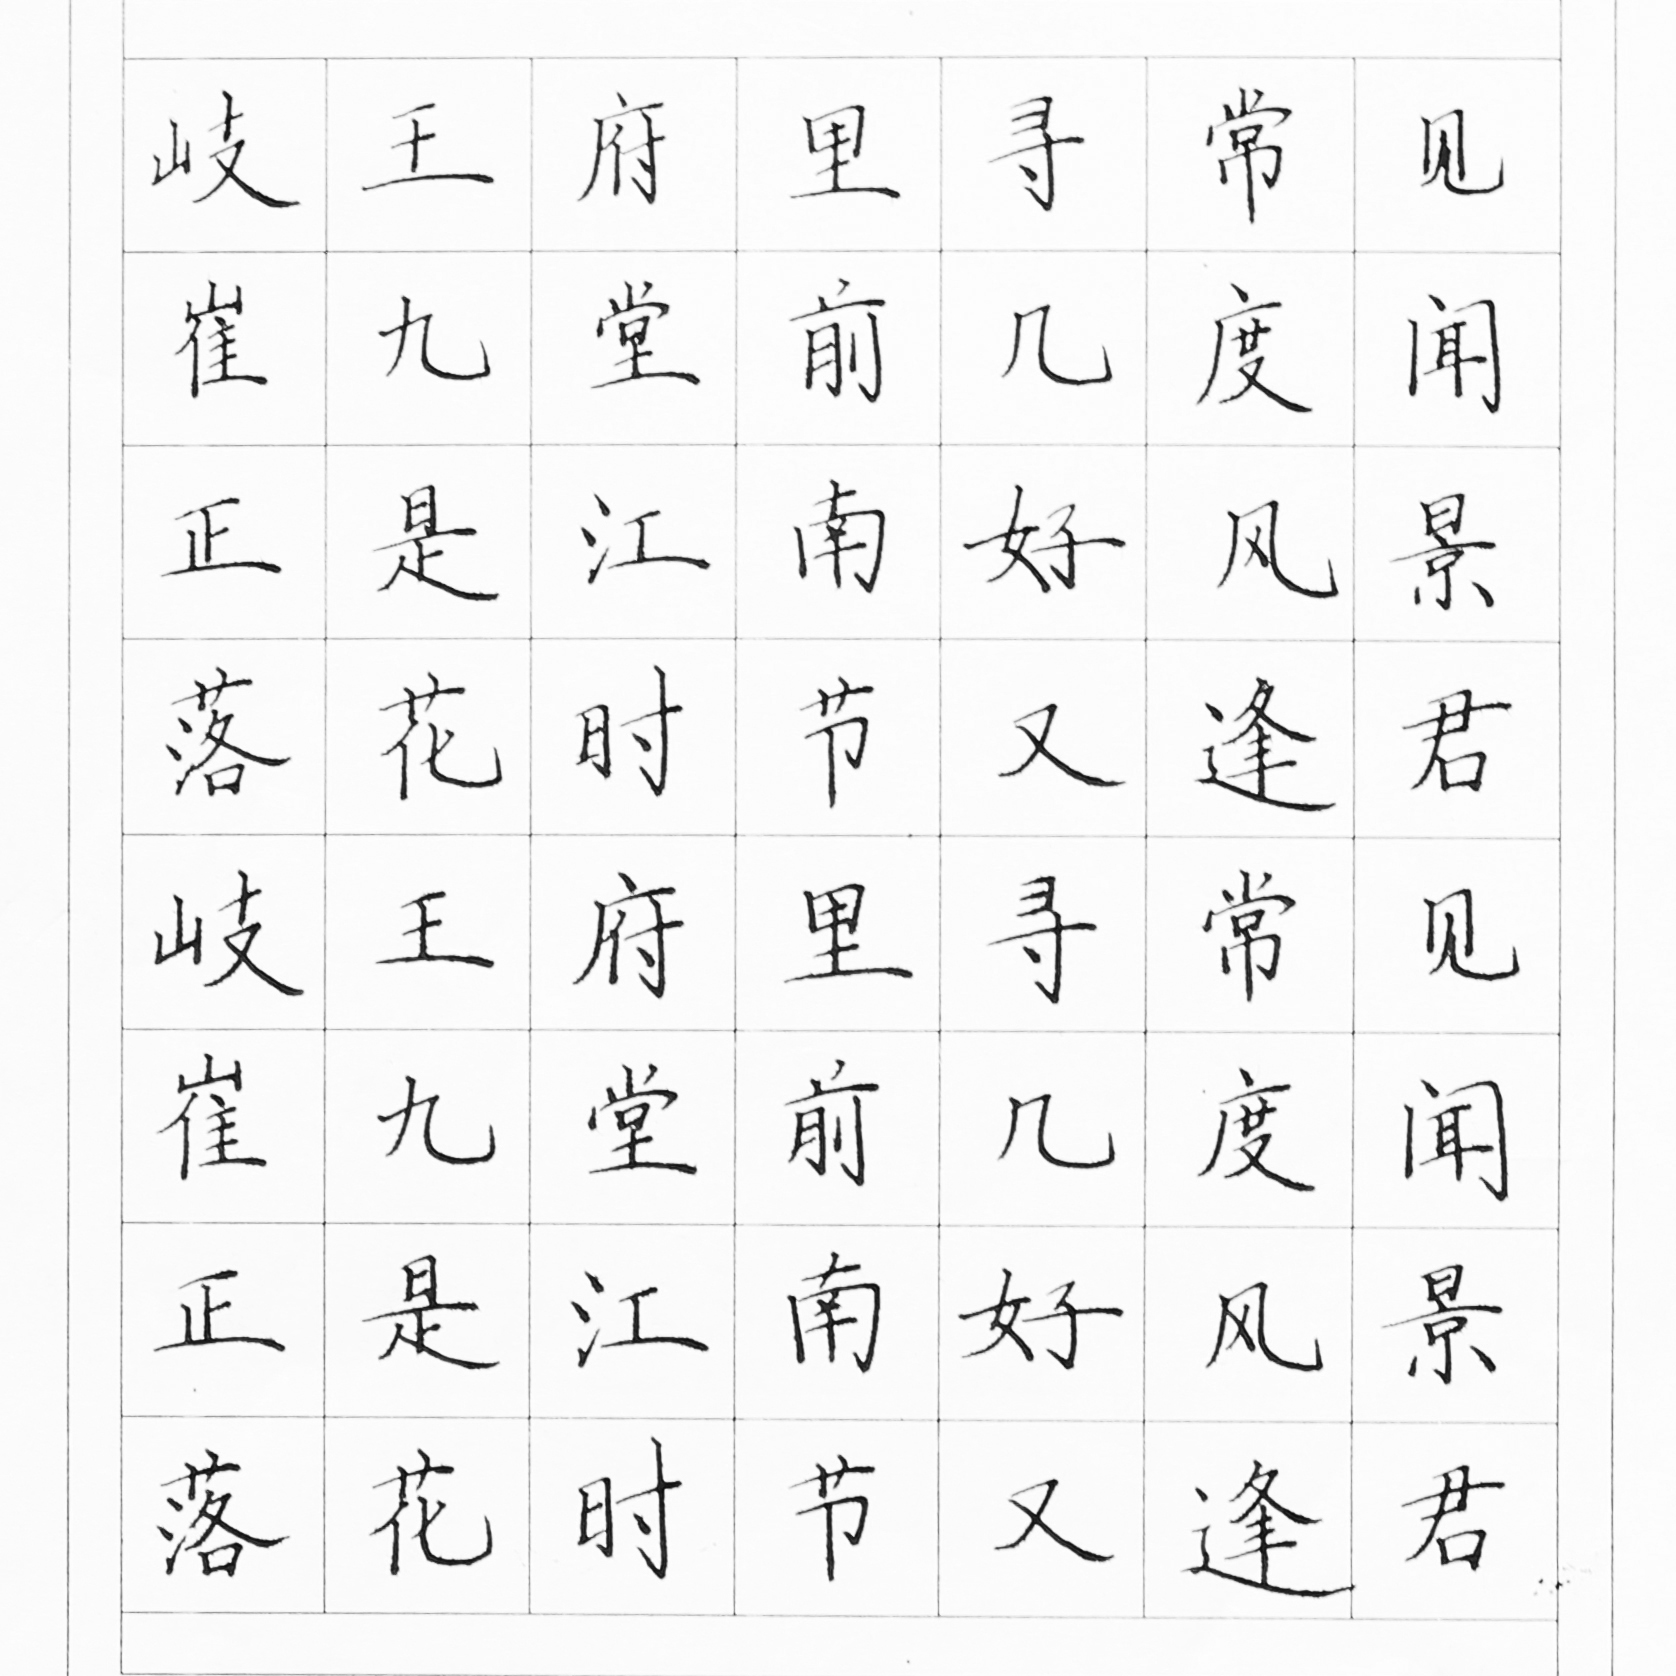 岐王府里寻常见
崔九堂前几度闻
正是江南好风景
落花时节又逢君
岐王府里寻常见
崔九堂前几度闻
正是江南好风景
落花时节又逢君